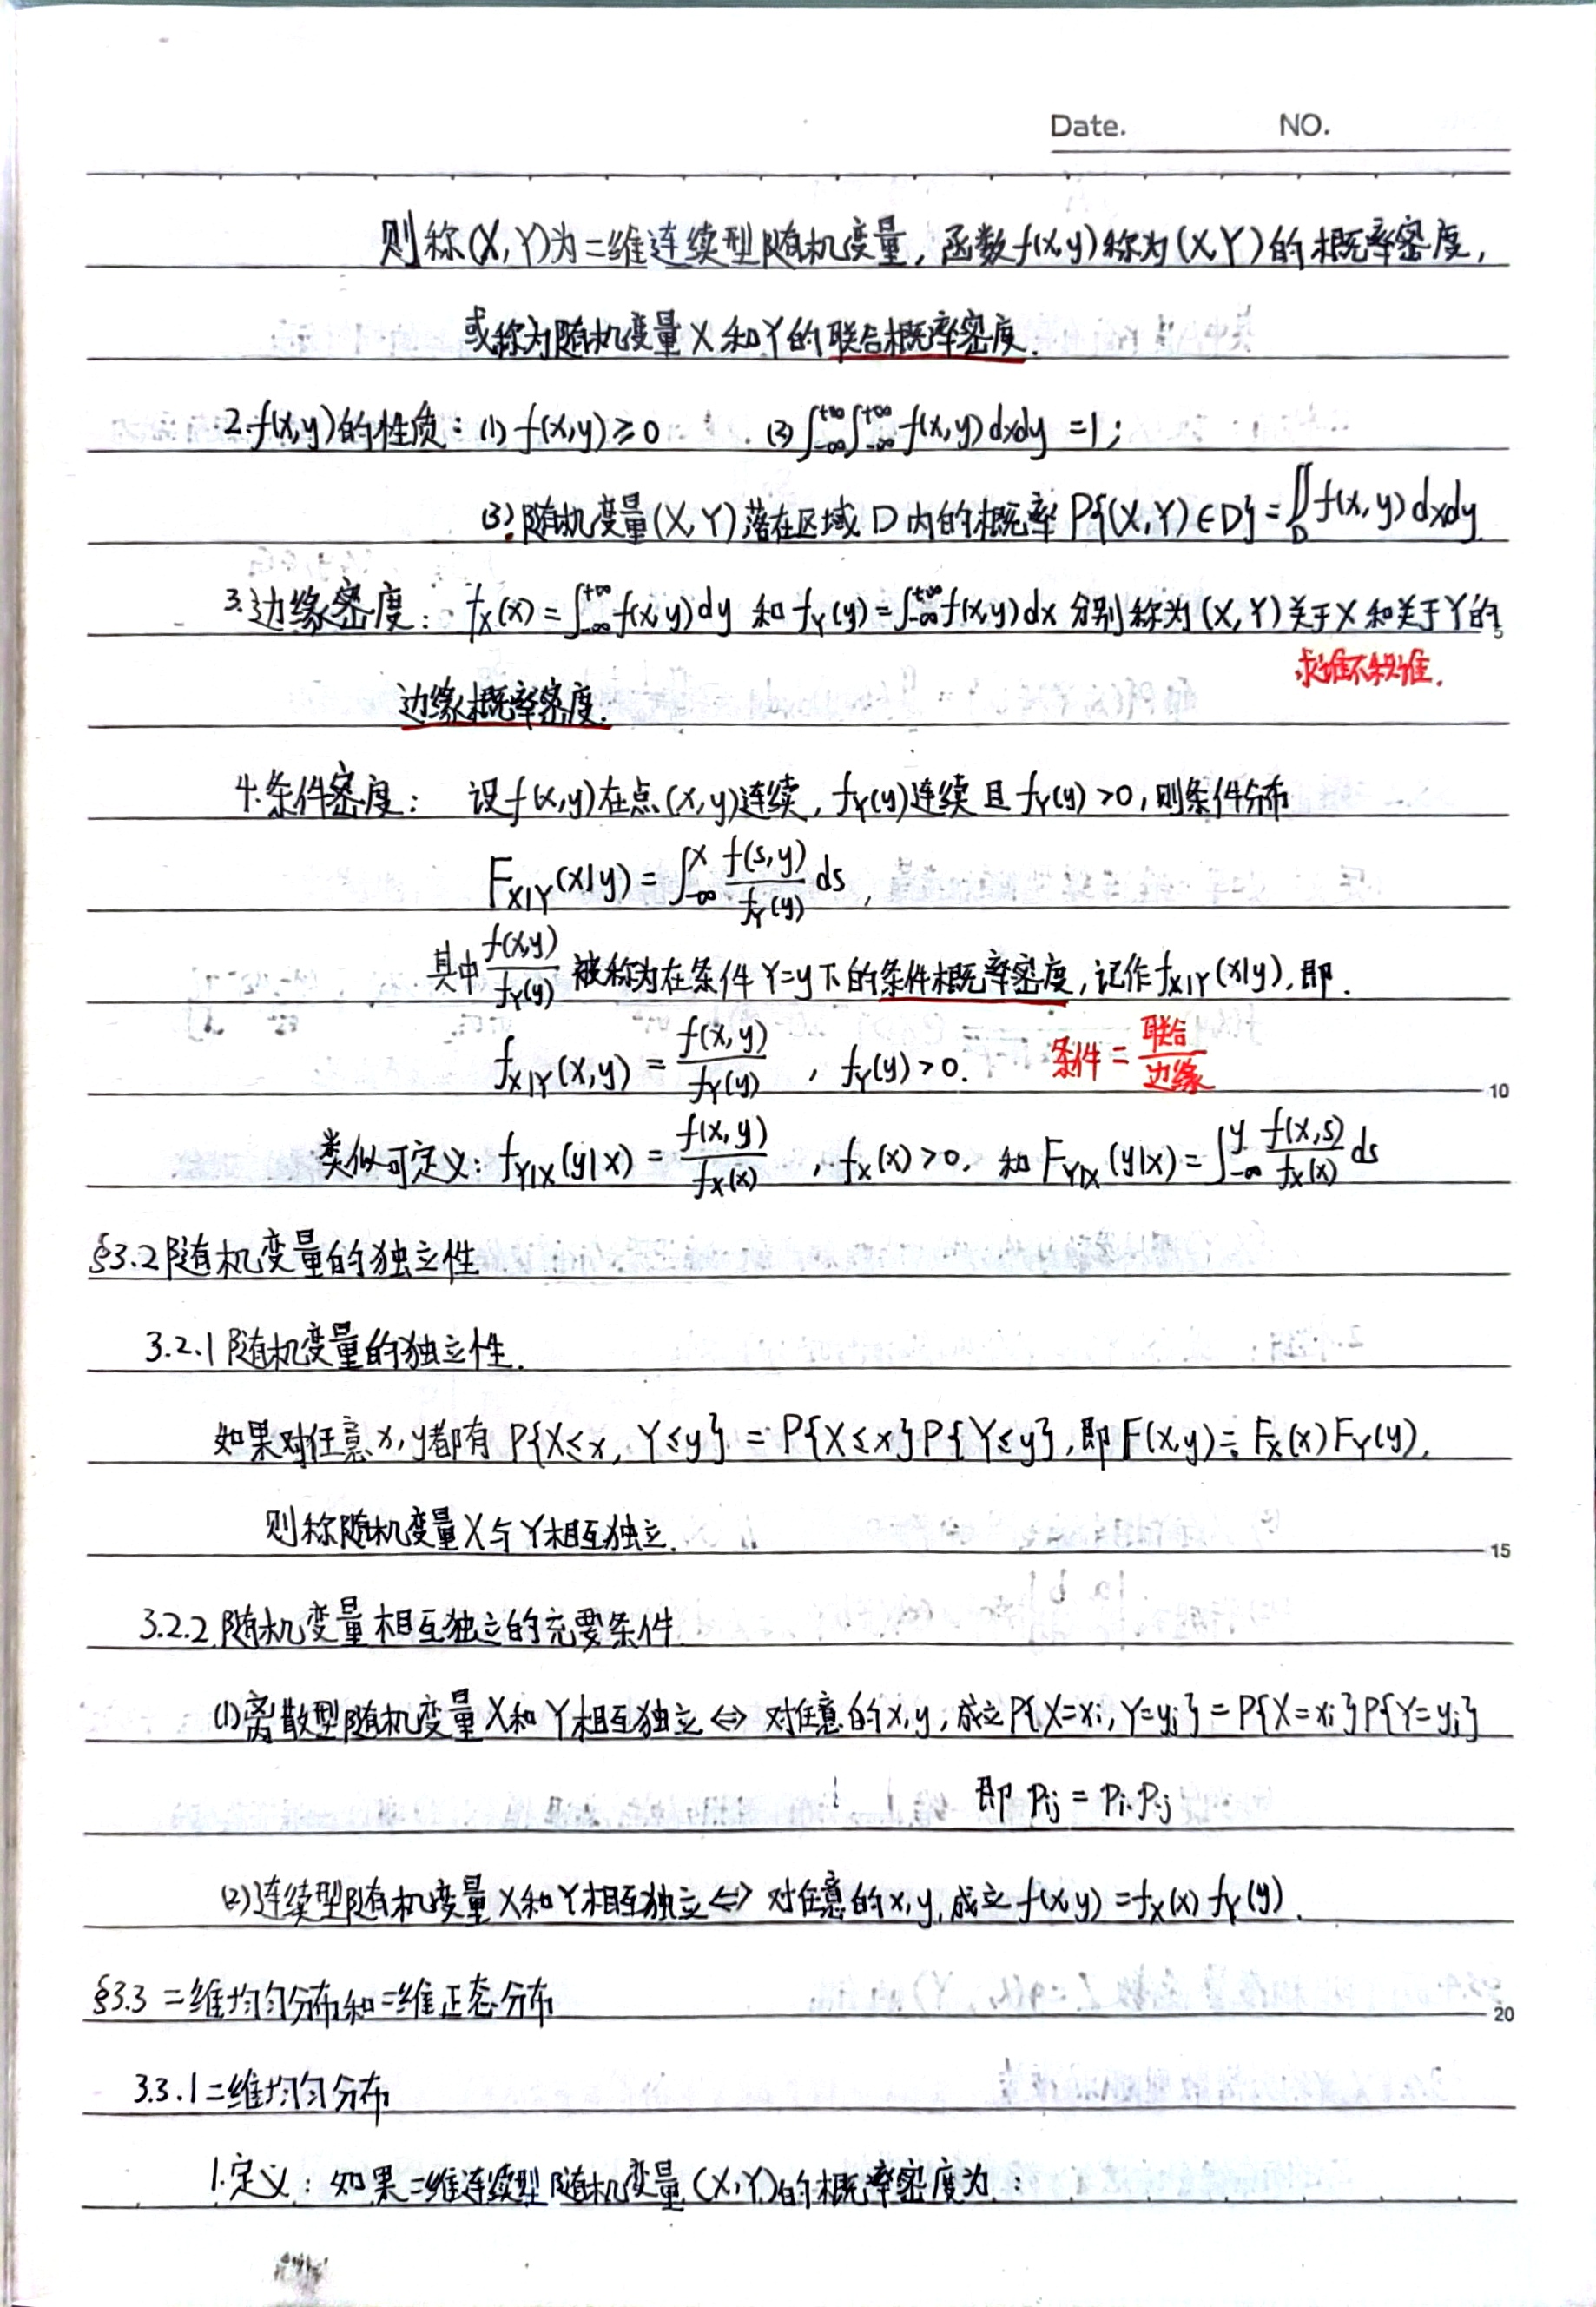 Date. NO.
则称(X,Y)为二维连续型随机变量，函数f(x,y)称为(X,Y)的概率密度，
或称为随机变量X和Y的联合概率密度.
2.f(x,y)的性质：(1) f(x,y)≥0 (2)∫_{-∞}^{+∞}∫_{-∞}^{+∞} f(x,y)dxdy =1；
(3).随机变量(X,Y)落在区域D内的概率P{(X,Y)∈D}=∬_D f(x,y)dxdy.
3.边缘密度： f_X(x)=∫_{-∞}^{+∞}f(x,y)dy 和 f_Y(y)=∫_{-∞}^{+∞}f(x,y)dx 分别称为(X,Y)关于X和关于Y的
5
求谁不积谁.
边缘概率密度.
4.条件密度： 设f(x,y)在点(x,y)连续，f_Y(y)连续且f_Y(y)>0，则条件分布
F_{X|Y}(x|y)=∫_{-∞}^{x} \frac{f(s,y)}{f_Y(y)} ds，
其中\frac{f(x,y)}{f_Y(y)}被称为在条件Y=y下的条件概率密度，记作f_{X|Y}(x|y)，即.
f_{X|Y}(x,y)=\frac{f(x,y)}{f_Y(y)}，f_Y(y)>0. 条件=\frac{联合}{边缘}
10
类似可定义：f_{Y|X}(y|x)=\frac{f(x,y)}{f_X(x)}，f_X(x)>0，和F_{Y|X}(y|x)=∫_{-∞}^{y} \frac{f(x,s)}{f_X(x)} ds
§3.2随机变量的独立性
3.2.1随机变量的独立性.
如果对任意x,y都有 P{X≤x, Y≤y} = P{X≤x}P{Y≤y}，即F(x,y)=F_X(x)F_Y(y)，
则称随机变量X与Y相互独立.
15
3.2.2随机变量相互独立的充要条件
(1)离散型随机变量X和Y相互独立⇔对任意的x,y，成立P{X=x_i,Y=y_j}=P{X=x_i}P{Y=y_j}
即 P_{ij} = P_{i·}P_{·j}
(2)连续型随机变量X和Y相互独立⇔对任意的x,y,成立f(x,y)=f_X(x)f_Y(y).
§3.3 二维均匀分布和二维正态分布
20
3.3.1二维均匀分布
1.定义：如果二维连续型随机变量(X,Y)的概率密度为：